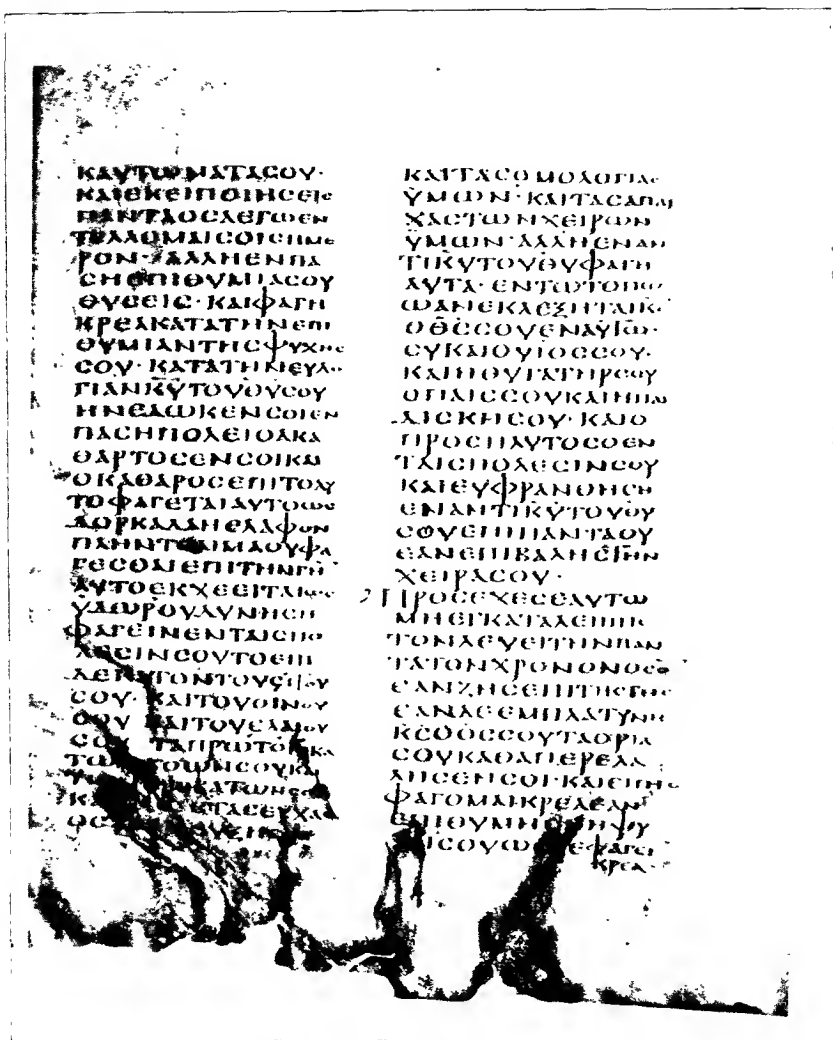 ΚΑΥΤΩΜΑΤΑϹΟΥ·
ΚΑΙΕΚΕΙΠΟΙΗϹΕΙϹ
ΠΑΝΤΑΟϹΑΕΓΩΕΝ
ΤΕΛΛΟΜΑΙϹΟΙϹΗΜΕ
ΡΟΝ·ΑΛΛΗΕΝΠΑ
ϹΗΕΠΙΘΥΜΙΑϹΟΥ
ΘΥϹΕΙϹ·ΚΑΙΦΑΓΗ
ΚΡΕΑΚΑΤΑΤΗΝΕΠΙ
ΘΥΜΙΑΝΤΗϹΨΥΧΗϹ
ϹΟΥ·ΚΑΤΑΤΗΝΕΥΛΟ
ΓΙΑΝΚ̅Υ̅ΤΟΥΘ̅Υ̅ϹΟΥ
ΗΝΕΔΩΚΕΝϹΟΙΕΝ
ΠΑϹΗΠΟΛΕΙΟΑΚΑ
ΘΑΡΤΟϹΕΝϹΟΙΚΑΙ
ΟΚΑΘΑΡΟϹΕΠΙΤΟΑΥ
ΤΟΦΑΓΕΤΑΙΑΥΤΟΩϹ
ΔΟΡΚΑΔΑΗΕΛΑΦΟΝ
ΠΛΗΝΤΟΑΙΜΑΟΥΦΑ
ΓΕϹΘΑΙΕΠΙΤΗΝΓΗ̅
ΑΥΤΟΕΚΧΕΕΙΤΑΙΩϹ
ΥΔΩΡΟΥΔΥΝΗϹΗ
ΦΑΓΕΙΝΕΝΤΑΙϹΠΟ
ΛΕϹΙΝϹΟΥΤΟΕΠΙ
ΔΕΚΑΤΟΝΤΟΥϹΙΤΟΥ
ϹΟΥ·ΚΑΙΤΟΥΟΙΝΟΥ
ϹΟΥ ΚΑΙΤΟΥΕΛΑΙΟΥ
ϹΟΥ ΤΑΠΡΩΤΟΤΟΚΑ
ΚΑΙΤΑϹΟΜΟΛΟΓΙΑϹ
ΥΜΩΝ·ΚΑΙΤΑϹΑΠΑΡ
ΧΑϹΤΩΝΧΕΙΡΩΝ
ΥΜΩΝ·ΑΛΛΗΕΝΑΝ
ΤΙΚ̅Υ̅ΤΟΥΘ̅Υ̅ΦΑΓΗ
ΑΥΤΑ·ΕΝΤΩΤΟΠΩ
ΩΑΝΕΚΛΕΞΗΤΑΙΚ̅Ϲ̅
ΟΘ̅Ϲ̅ϹΟΥΕΝΑΥΤΩ·
ϹΥΚΑΙΟΥΙΟϹϹΟΥ·
ΚΑΙΗΘΥΓΑΤΗΡϹΟΥ
ΟΠΑΙϹϹΟΥΚΑΙΗΠΑΙ
ΔΙϹΚΗϹΟΥ·ΚΑΙΟ
ΠΡΟϹΗΛΥΤΟϹΟΕΝ
ΤΑΙϹΠΟΛΕϹΙΝϹΟΥ
ΚΑΙΕΥΦΡΑΝΘΗϹΗ
ΕΝΑΝΤΙΚ̅Υ̅ΤΟΥΘ̅Υ̅
ϹΟΥΕΠΙΠΑΝΤΑΟΥ
ΕΑΝΕΠΙΒΑΛΗϹΤΗΝ
ΧΕΙΡΑϹΟΥ·
ΠΡΟϹΕΧΕϹΕΑΥΤΩ
ΜΗΕΓΚΑΤΑΛΕΙΠΗϹ
ΤΟΝΛΕΥΕΙΤΗΝΠΑΝ
ΤΑΤΟΝΧΡΟΝΟΝΟϹΟ̅
ΕΑΝΖΗϹΕΠΙΤΗϹΓΗϹ
ΕΑΝΔΕΕΜΠΛΑΤΥΝΗ
Κ̅Ϲ̅ΟΘ̅Ϲ̅ϹΟΥΤΑΟΡΙΑ
ϹΟΥΚΑΘΑΠΕΡΕΛΑ
ΛΗϹΕΝϹΟΙ·ΚΑΙΕΙΠΗϹ
ΦΑΓΟΜΑΙΚΡΕΑΕΑΝ
ΕΠΙΘΥΜΗϹΗΗΨΥ